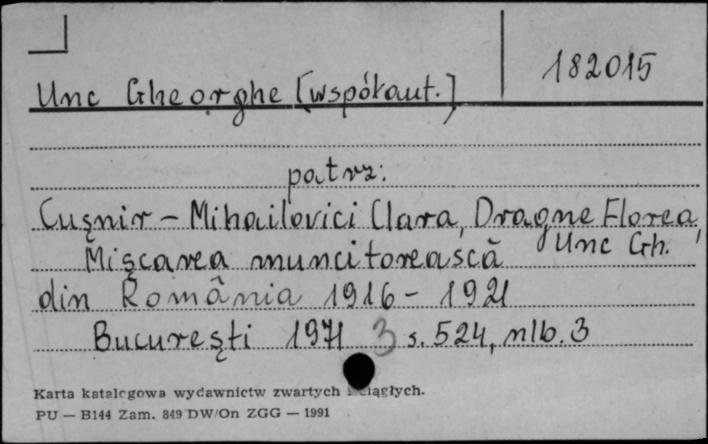 182015
Unc Gheorghe [współaut.]
patrz:
Cuşnir - Mihailovici Clara, Dragne Florea,
Unc Gh.
Mişcarea muncitorească
din România 1916 - 1921
Bucureşti 1971 3 s. 524, nlb. 3
Karta katalogowa wydawnictw zwartych i ciągłych.
PU — B144 Zam. 849 DW/On ZGG — 1991